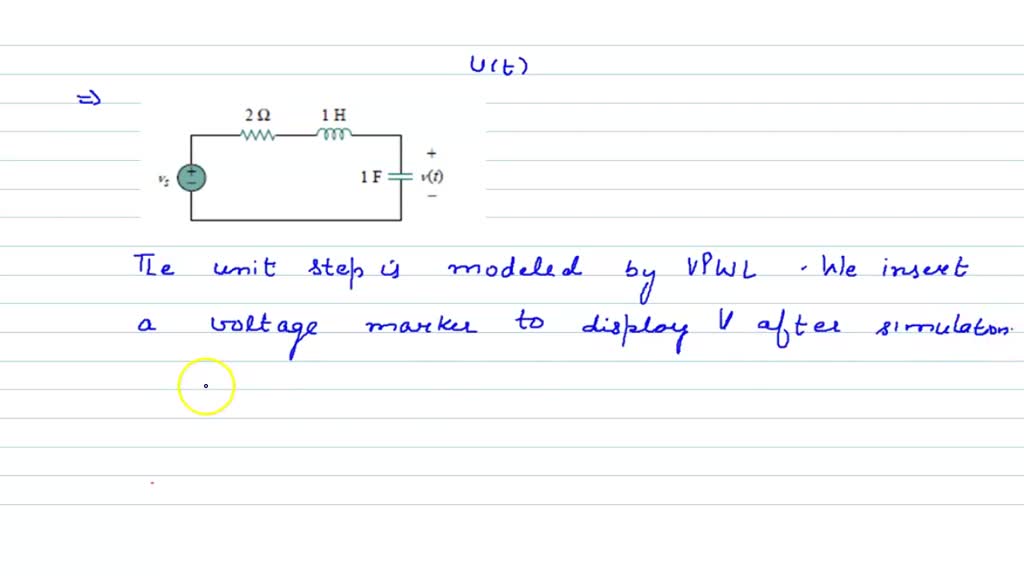 v(t)
⇒
2 Ω 1 H
+
vs + − 1 F v(t)
−
The unit step is modeled by VPWL . We insert
a voltage marker to display V after simulaton.